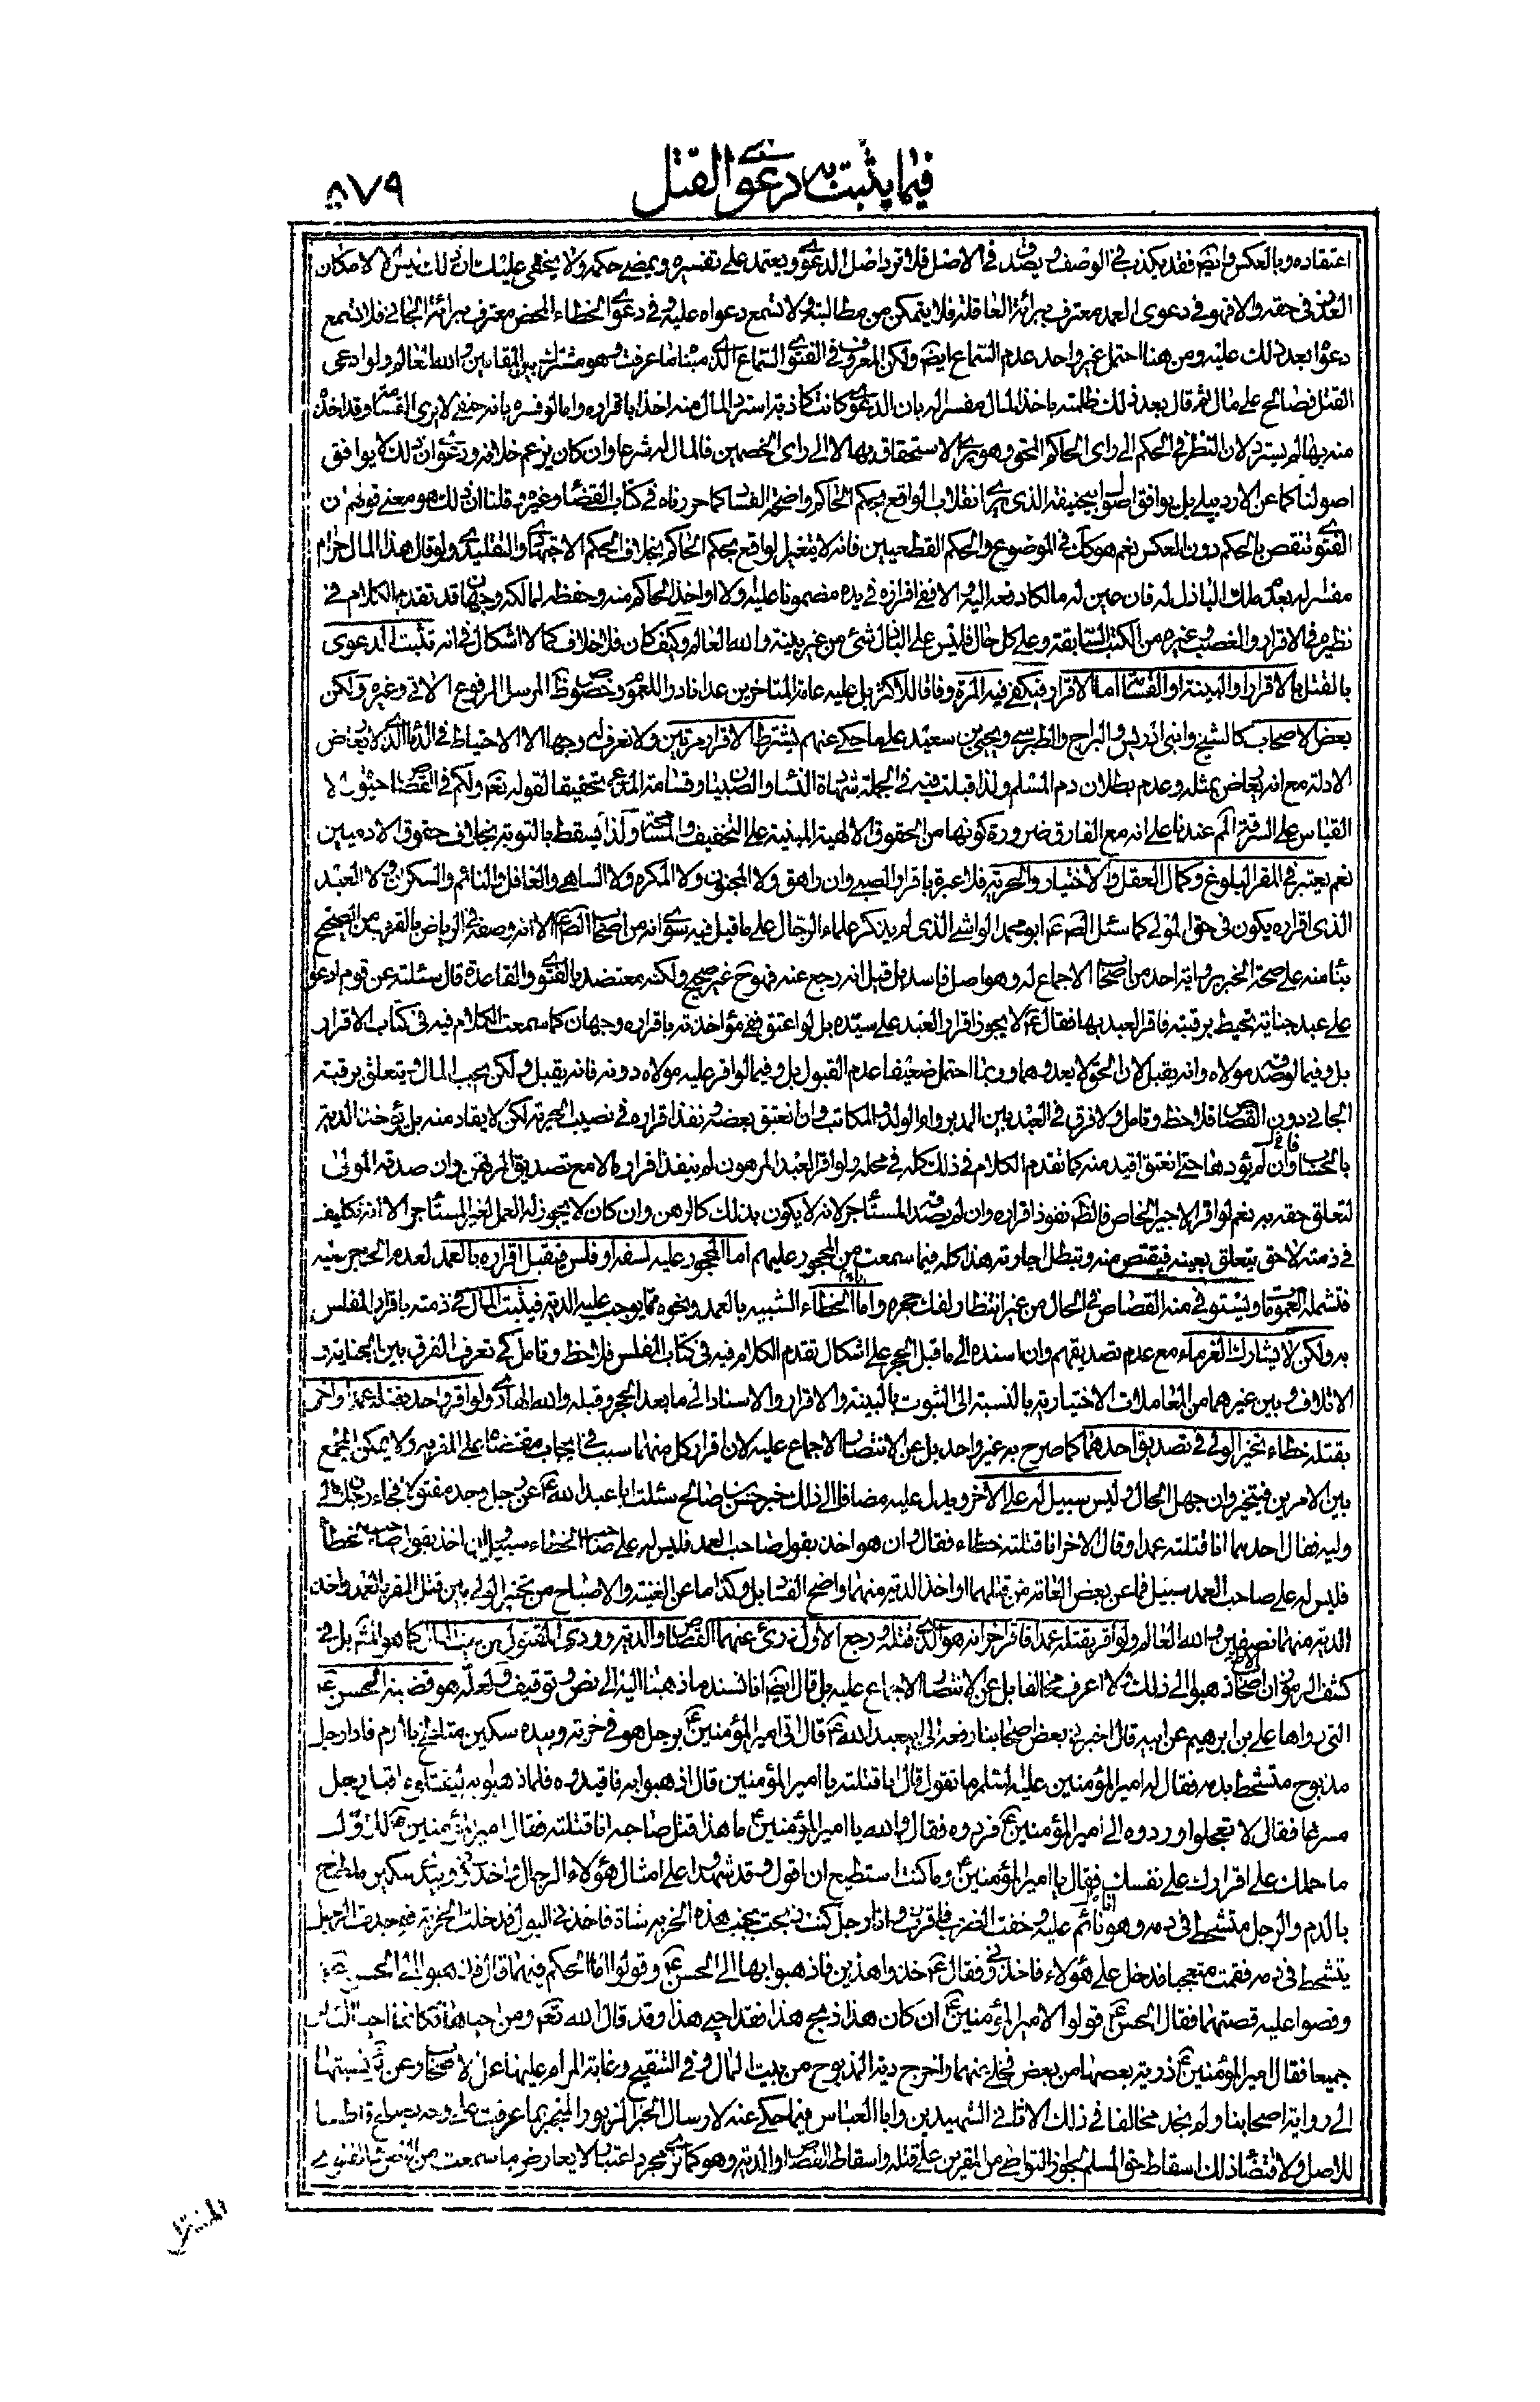 فيما يثبت به دعوى القتل
٥٧٩
اعتقاده وبالعكس وايضا فقد يكذب في الوصف ويصدق في الاصل فلا تردا اصل الدعوى ويعتمد على تفسيره ويمضى حكمه ولا يخفى عليك ان ذلك ليس الا لامكان
العذر في حقه والا فهو في دعوى العمد معترف ببرائة العاقلة فلا يتمكن من مطالبتهم ولا تسمع دعواه عليهم وفي دعوى الخطاء المحض معترف ببرائة الجاني فلا تسمع
دعوا بعد ذلك عليه ومن هنا احتمل غير واحد عدم السماع ايضا ولكن المعروف في الفتوى السماع الذي مبناه ما عرفت وهو مشترك بين المقامين والله العالم ولو ادعى
القتل فصالح على مال ثم قال بعد ذلك ظلمته باخذ المال مفسرا له بان الدعوى كانت كاذبة استرد المال منه اخذا باقراره واما لو فسره بانه حنفي لا يرى القسامة وقد اخذه
منه بها لم يسترد لان النظر في الحكم الى راى الحاكم المحق وهو يرى الاستحقاق بها لا الى راى الخصمين فالمال له شرعا وان كان يزعم خلافه ودعوى ان ذلك لا يوافق
اصولنا كما عن الاردبيلي بل يوافق اصول ابيحنيفة الذي يرى انقلاب الواقع بحكم الحاكم واضحة الفساد كما حررناه في كتاب القضاء وغيره وقلنا ان ذلك هو معنى قولهم ان
الفتوى تنقض بالحكم دون العكس نعم هو كك في الموضوع والحكم القطعيين فانه لا يتغير الواقع بحكم الحاكم بخلاف الحكم الاجتهادي والتقليدي ولو قال هذا المال حرام
مفسرا له بعدم ملك الباذل له فان عين له مالكا دفعه اليه والا ففي اقراره في يده مضمونا عليه ولا او اخذ الحاكم منه وحفظه لمالكه وجهان قد تقدم الكلام في
نظيره في الاقرار والغصب وغيره من الكتب السابقة وعلى كل حال فليس على الباذل شئ من غير بينة والله العالم وكيف كان فلا خلاف كما لا اشكال في انه تثبت الدعوى
بالقتل بالاقرار او البينة او القسامة اما الاقرار فيكفي فيه المرة وفاقا للاكثر بل عليه عامة المتاخرين عدا نادر للعموم وخصوص المرسل المرفوع الاتي وغيره ولكن
بعض الاصحاب كالشيخ وابنى ادريس والبراج والطبرسي ويحيى بن سعيد على ما حكى عنهم يشترط الاقرار مرتين ولا نعرف له وجها الا الاحتياط في الدماء الذي لا يعارض
الادلة مع انه يعارض بمثله وعدم بطلان دم المسلم ولذا قبلت فيه في الجملة شهادة النساء والصبيان وقسامة المدعى تحقيقا لقوله تعم ولكم في القصاص حيوة لا
القياس على السرقة المحرم عندنا على انه مع الفارق ضرورة كونها من الحقوق الالهية المبنية على التخفيف والمسامحة ولذا يسقط بالتوبة بخلاف حقوق الادميين
نعم يعتبر في المقر البلوغ وكمال العقل والاختيار والحرية فلا عبرة باقرار الصبي وان راهق ولا المجنون ولا المكره ولا الساهي والغافل والنائم والسكران ولا العبد
الذي اقراره يكون في حق المولى كما سئل الصم عم ابو محمد الوابشي الذي لم يذكر علماء الرجال على ما قيل فيه سوى انه من اصحاب الصم عم الا انه وصفه في الرياض بالقرب من الصحيح
بناء منه على صحة الخبر برواية احد من اصحاب الاجماع له وهو اصل فاسد بل قيل انه رجع عنه فهو ح غير صحيح ولكنه معتضد بالفتوى والقاعدة قال سئلته عن قوم ادعوا
على عبد جناية تحيط برقبته فاقر العبد بها فقال عم لا يجوز اقرار العبد على سيده بل لو اعتق ففي مؤاخذته باقراره وجهان كما سمعت الكلام فيه في كتاب الاقرار
بل وفيما لو صدقه مولاه وانه يقبل لان الحق لا يعدوهما وربما احتمل ضعيفا عدم القبول بل وفيما لو اقر عليه مولاه دونه فانه يقبل ولكن يجب المال ويتعلق برقبته
الجاني دون القصاص فلاحظ وتامل ولا فرق في العبد بين المدبر وام الولد والمكاتب وان تعتق بعضه ونفذ اقراره في نصيب الحرية لكن لا يقاد منه بل يؤخذ الدية
بالحساب وان لم يؤدها حتى انعتق اقيد منه كما تقدم الكلام في ذلك كله في محله ولو اقر العبد المرهون لم ينفذ اقراره الا مع تصديق المرتهن وان صدقه المولى
لتعلق حقه به نعم لو اقر الاجير الخاص فالظم نفوذ اقراره وان لم يصدقه المستأجر لانه لا يكون بذلك كالرهن وان كان لا يجوز له العمل لغير المستأجر الا انه تكليف
في ذمته لا حق يتعلق بعينه فيقتص منه وتبطل اجارته هذا كله فيما سمعت من المحجور عليهم اما المحجور عليه لسفه او فلس فيقبل اقراره بالعمد لعدم الحجر فيه
فتشمله العمومات ويستوفى منه القصاص في الحال من غير انتظار لفك حجره واما الخطاء الشبيه بالعمد ونحوه مما يوجب عليه الدية فيثبت المال في ذمته باقرار المفلس
به ولكن لا يشارك الغرماء مع عدم تصديقهم وان اسنده الى ما قبل الحجر على اشكال تقدم الكلام فيه في كتاب الفلس فلاحظ وتامل كي تعرف الفرق بين الجناية و
الاتلاف وبين غيرهما من المعاملات الاختيارية بالنسبة الى الثبوت بالبينة والاقرار والاسناد الى ما بعد الحجر وقبله والله الهادي ولو اقر واحد بقتله عمدا واخر
بقتله خطاء تخير الولي في تصديق احدهما كما صرح به غير واحد بل عن الانتصار الاجماع عليه لان اقرار كل منهما سبب في ايجاب مقتضاه على المقر به ولا يمكن الجمع
بين الامرين فيتخير وان جهل الحال وليس له سبيل على الاخر ويدل عليه مضافا الى ذلك خبر حسن بن صالح سئلت ابا عبد الله عم عن رجل وجد مقتولا فجاء رجلان الى
وليه فقال احدهما انا قتلته عمدا وقال الاخر انا قتلته خطاء فقال ان هو اخذ بقول صاحب العمد فليس له على صاحب الخطاء سبيل وان اخذ بقول صاحب الخطأ
فليس له على صاحب العمد سبيل فما عن بعض العامة من قتلهما او اخذ الدية منهما واضح الفساد بل وكذا ما عن الغنية والاصباح من تخير الولي بين قتل المقر بالعمد واخذ
الدية منهما نصفين والله العالم ولو اقر بقتله عمدا فاقر اخر انه هو الذي قتله ورجع الاول درئ عنهما القصاص والدية وودي المقتول من بيت المال كما هو المشهور بل في
كشف الرموز ان الاصحاب ذهبوا الى ذلك ولا اعرف مخالفا بل عن الانتصار الاجماع عليه بل قال ايضا انا نسند ما ذهبنا اليه الى نص وتوقيف ولعله هو قضية الحسن عم
التي رواها علي بن ابرهيم عن ابيه قال اخبرني بعض اصحابنا رفعه الى ابيعبد الله عم قال اتى امير المؤمنين عم برجل هو في خربة وبيده سكين متلطخ بالدم فاذا رجل
مذبوح متشحط بدمه فقال له امير المؤمنين عليه السلم ما تقول قال انا قتلته يا امير المؤمنين قال اذهبوا به فاقيدوه فلما ذهبوا به ليقتلوه اقبل رجل
مسرعا فقال لا تعجلوا وردوه الى امير المؤمنين عم فردوه فقال والله يا امير المؤمنين عم ما هذا قتل صاحبه انا قتلته فقال امير المؤمنين عم للاول
ما حملك على اقرارك على نفسك فقال يا امير المؤمنين عم وما كنت استطيع ان اقول وقد شهدوا على امثال هؤلاء الرجال واخذوني وبيدي سكين ملطخ
بالدم والرجل متشحط في دمه وهو انا قائم عليه وخفت الضرب فاقررت وانا رجل كنت ذبحت بجنب هذه الخربة شاة فاخذني البول فدخلت الخربة فوجدت الرجل
يتشحط في دمه فقمت متعجبا فدخل على هؤلاء فاخذوني فقال عم خذوا هذين فاذهبوا بهما الى الحسن عم وقولوا له ما الحكم فيهما قال فذهبوا الى الحسن عم
وقصوا عليه قصتهما فقال الحسن عم قولوا لامير المؤمنين عم ان كان هذا ذبح هذا فقد احيى هذا وقد قال الله تعم ومن احياها فكانما احيا الناس
جميعا فقال امير المؤمنين عم بعضها من بعض فخلى عنهما واخرج دية المذبوح من بيت المال وفي التنقيح وغاية المرام عليها عمل الاصحاب وعن نسبتها
الى رواية اصحابنا ولم نجد مخالفا في ذلك الا ثاني الشهيدين وابا العباس فيما حكى عنه لارسال الخبر المزبور المنجبر بما عرفت على وجه
للاصل ولاقتضاء ذلك اسقاط حق المسلم لجواز التواطئ من المقرين على قتله واسقاط القصاص والدية وهو كما ترى مجرد اعتبار لا يعارض ما سمعت من النص